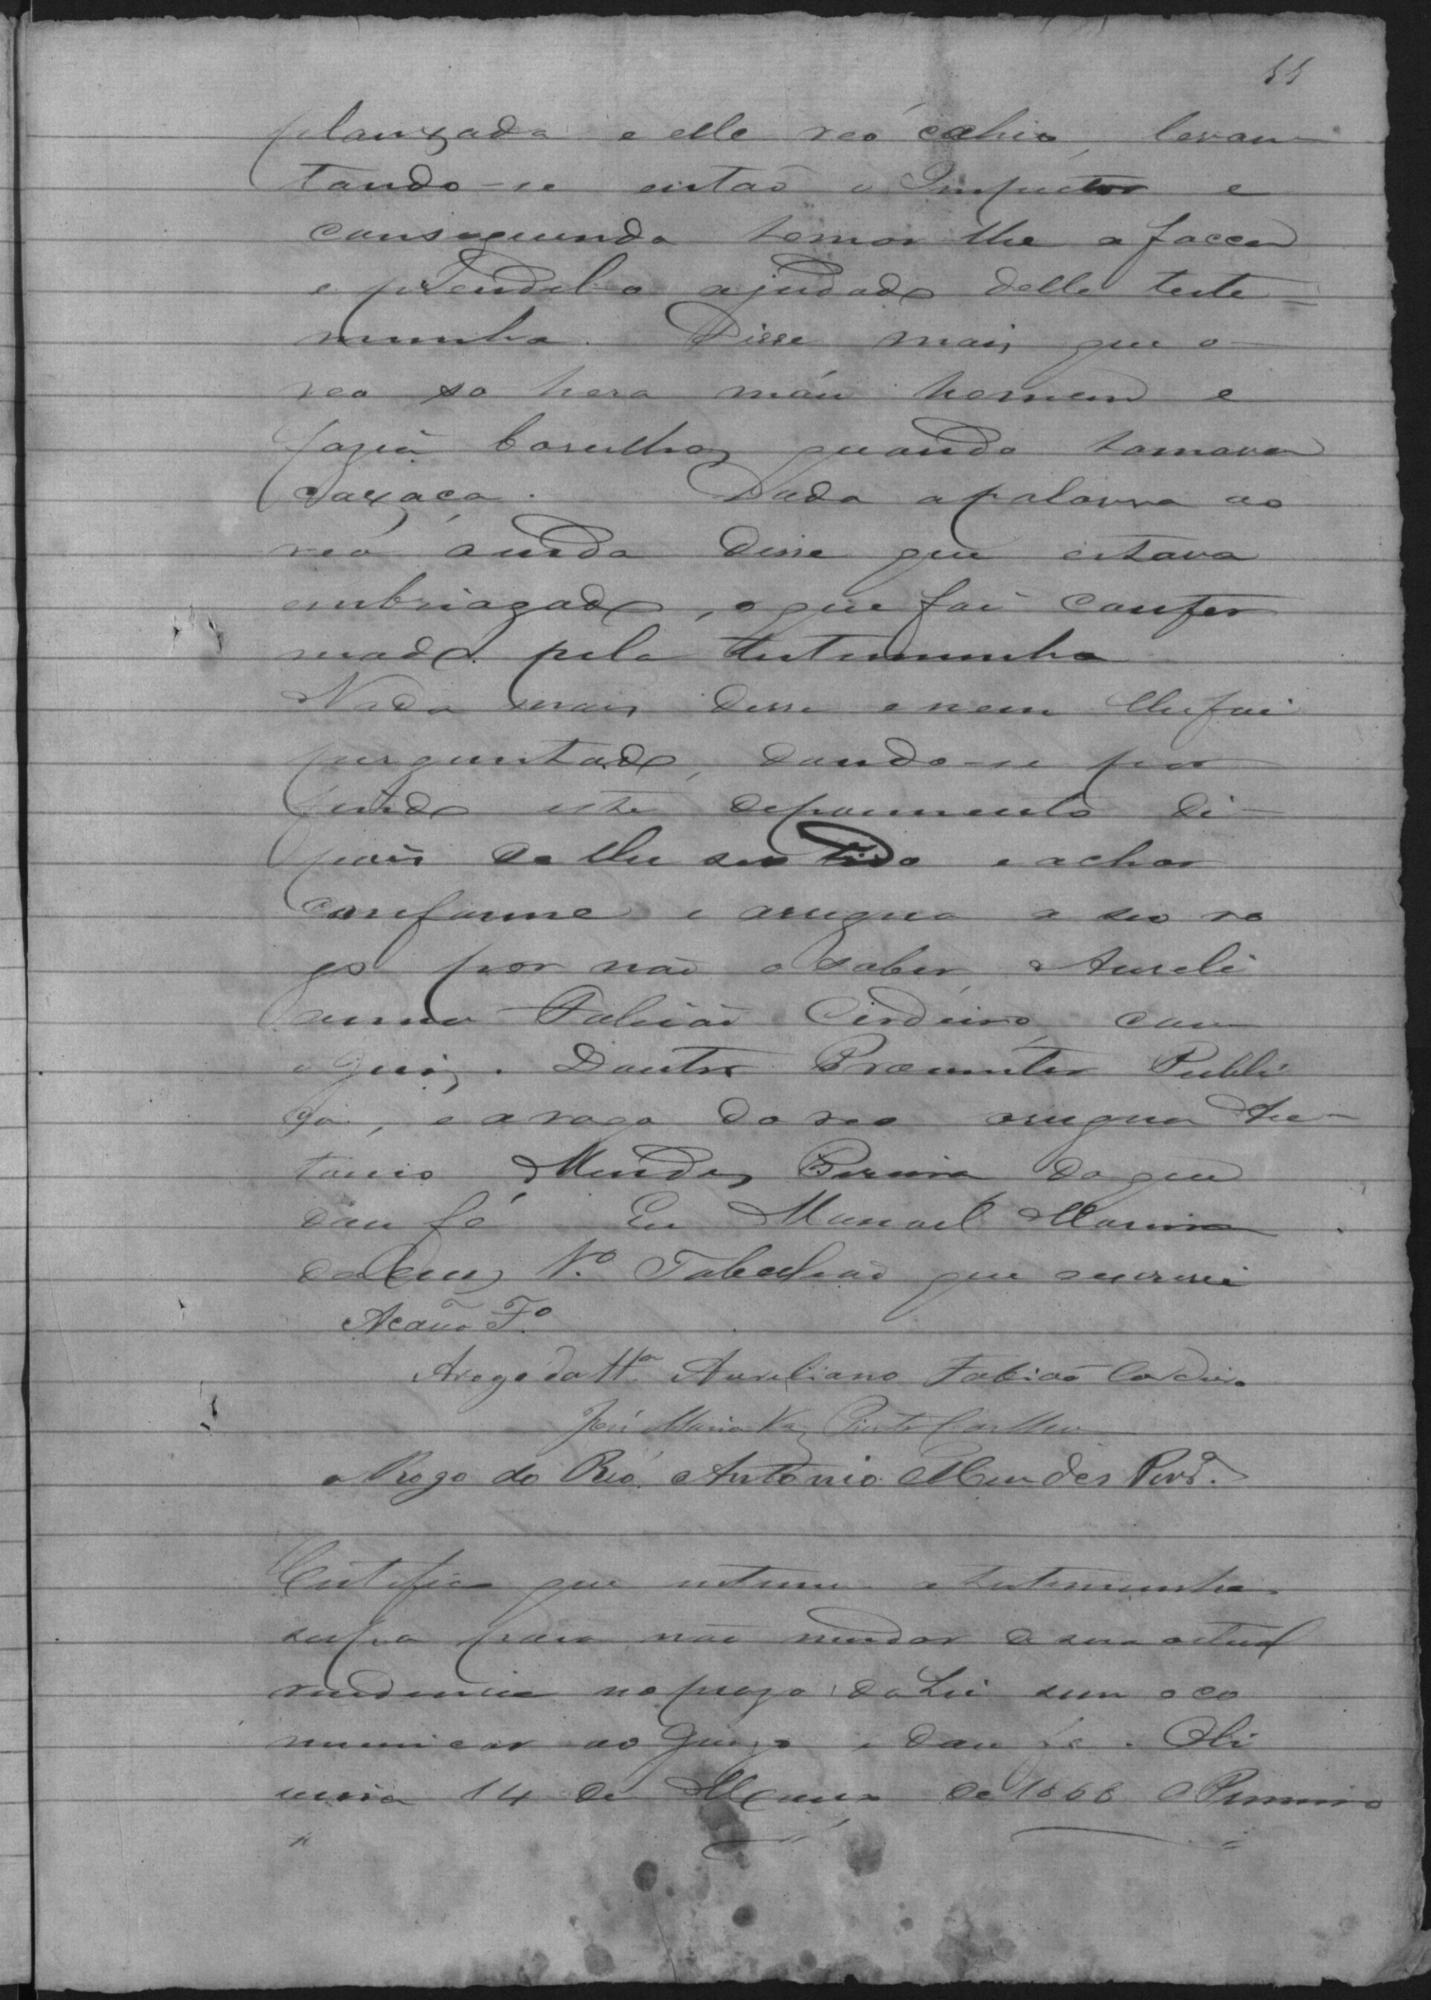 55
plansada e elle reó cahio, levan-
tando-se entaõ o Inspector e
conseguindo tomar lhe a facca
e prendel-o ajudado delle teste-
munha. Disse mais que o
reo só hera máu homem e
fazia barulhos quando tomava
caxaça. Dada a palavra ao
reó ainda disse que estava
embriagado, o que foi confir
mado pela testemunha
Nada mais disse e nem lhe foi
perguntado, dando-se por
findo este depoimento de-
pois de lhe ser lido e achar
conforme e assigna a seo ro
go por não o saber, Aureli
anno Fabiaõ Cordeiro, com
o Juiz. Doutor Promutor Publi
co, e a rogo do reo assigna An-
tonio Mendes Pereira do que
dou fé Eu Manoel Moreira
da Cruz, 1º Tabeliaõ que escrevi
Arogo da ttª Aureliano Fabiaõ Cordeiro
José Maria Vaz Pinto Coelho
a Rogo do Reó Antonio Mendes Perª.
Certifico que intimei a testemunha
supra para naõ mudar de sua actual
residencia no prazo da Lei sem o co
municar ao Juizo e dou fe. Oli
veira 14 de Março de 1868 O Primeiro